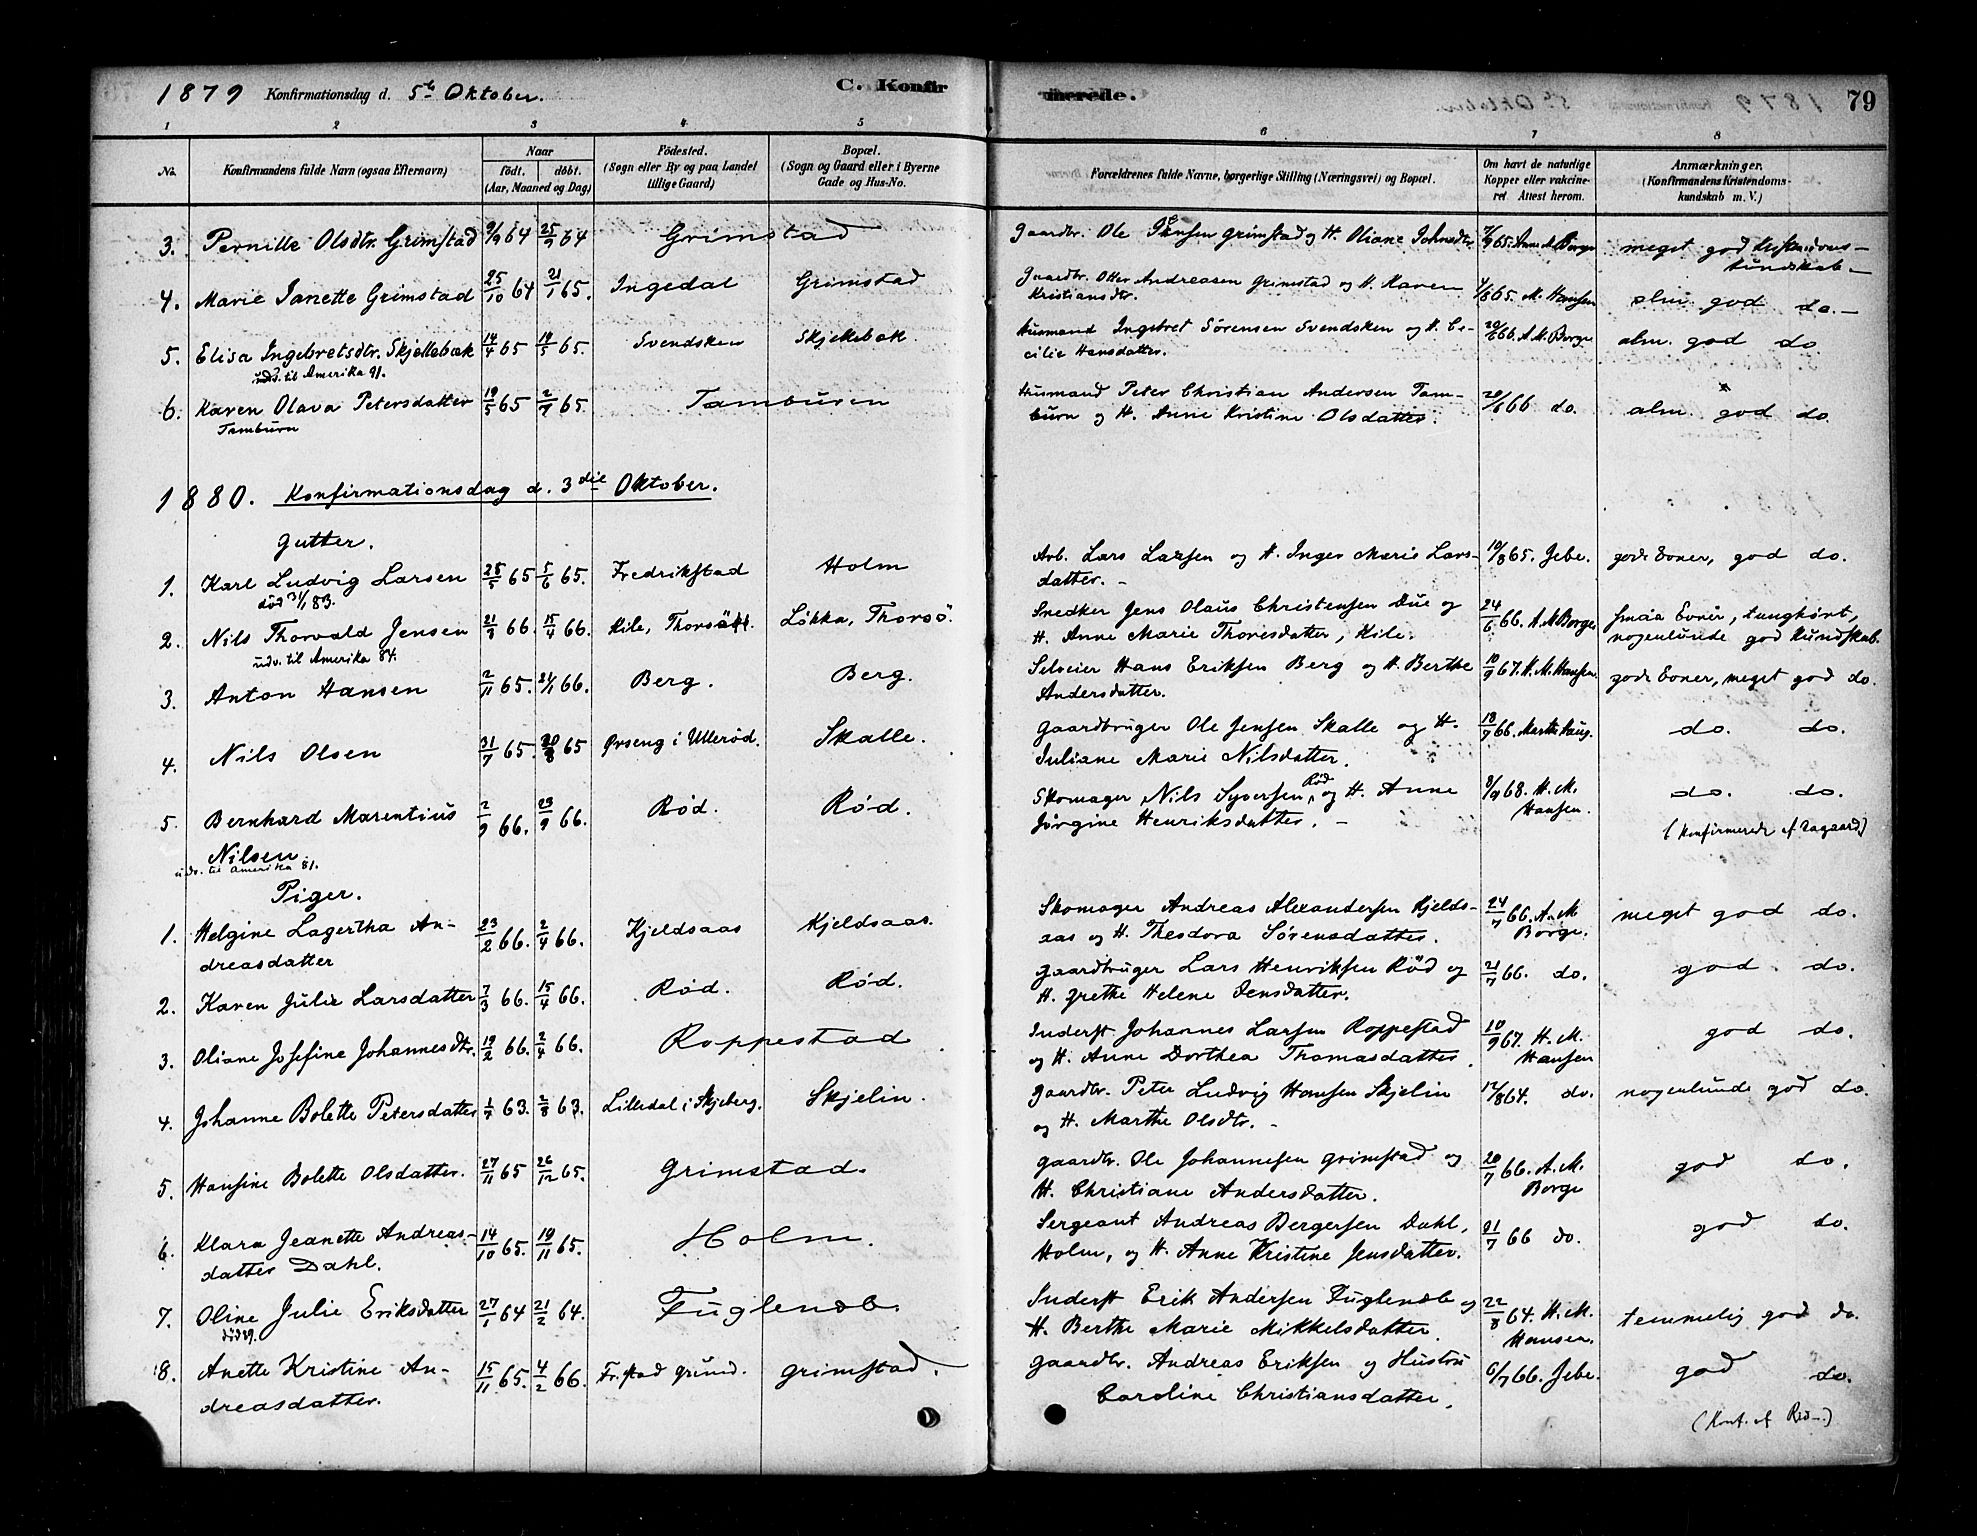 1879 Konfirmationsdag d. 5te Oktober. C. Konfirmerede. 79
1 2 3 4 5 6 7 8
No. Konfirmandens fulde Navn (ogsaa Efternavn) Naar født. døbt. (Aar, Maaned og Dag) Fødested. (Sogn eller By og paa Landet tillige Gaard) Bopæl. (Sogn og Gaard eller i Byerne Gade og Hus-No. Forældrenes fulde Navne, borgerlige Stilling (Næringsvei) og Bopæl. Om havt de naturlige Kopper eller vakcineret Attest herom. Anmærkninger. (Konfirmandens Kristendomskundskab m. V.)
3. Pernille Olsdtr. Grimstad 9/9 64 25/9 64 Grimstad Gaardbr. Ole Jensen Grimstad og H. Oliane Johnsdtr. 65. Anne M. Borge meget god Kristendoms-
kundskab.
4. Marie Janette Grimstad 25/10 64 21/1 65. Ingedal Grimstad Gaardbr. Otter Andreasen Grimstad og H. Karen
Kristiansdtr. 65. M. Hansen alm. god do.
5. Elisa Ingebretsdtr. Skjellebæk 14/4 65 14/5 65. Svendsken Skjellebæk Husmand Ingebret Sörensen Svendsken og H. Ce-
cilie Hansdatter. 66. A. M. Borge alm. god do
udv. til Amerika 91.
6. Karen Olava Petersdatter 19/5 65 2/7 65. Tamburen Husmand Peter Christian Andersen Tam-
Tamburn
burn og H. Anne Kristine Olsdatter. 20/6 66 do. alm. god do.
1880. Konfirmationsdag d. 3die Oktober.
Gutter.
1. Karl Ludvig Larsen 25/5 65 5/6 65. Fredrikstad Holm Arb. Lars Larsen og H. Inger Marie Lars-
datter. 10/8 65. Jebe. gode Evner, god do.
död 31/1 83.
2. Nils Thorvald Jensen 21/3 66. 15/4 66. Kile, Thorsö Lökka, Thorsö. Snedker Jens Olaus Christensen Due og
H. Anne Marie Thoresdatter, Kile. 24/6 66. A. M. Borge. smaa Evner, tunghört,
nogenlunde god Kundskab.
udv. til Amerika 84.
3. Anton Hansen 2/11 65. 21/1 66. Berg. Berg. Selveier Hans Eriksen Berg og H. Berthe
Andersdatter. 10/9 67. H. M. Hansen. gode Evner, meget god do.
4. Nils Olsen 31/7 65. 20/8 65 Ørseng i Ullerød. Skalle. Gaardbruger Ole Jensen Skalle og H.
Juliane Marie Nilsdatter. 18/7 66. Marthe Haug. do. do.
5. Bernhard Marentius 2/9 66. 23/9 66. Rød. Rød. Skomager Nils Syversen Rød og H. Anne
Jörgine Henriksdatter. 8/9 68. H. M.
Hansen. do. do.
Nilsen. (Konfirmeret af Aagaard)
udv. til Amerika 81.
Piger.
1. Helgine Lagertha An- 23/2 66. 2/4 66. Kjeldsaas Kjeldsaas. Skomager Andreas Alexandersen Kjelds-
dreasdatter
aas og H. Theodora Sörensdatter. 24/7 66. A. M.
Borge. meget god do.
2. Karen Julie Larsdatter 7/3 66. 15/4 66. Rød. Rød. Gaardbruger Lars Henriksen Rød og
H. Grethe Helene Jensdatter. 21/7 66. do. god do.
3. Oliane Josefine Johannesdtr. 19/2 66. 2/4 66. Roppestad Inderst Johannes Larsen Roppestad
og H. Anne Dorthea Thomasdatter. 10/9 67. H. M.
Hansen god do.
4. Johanne Bolette Petersdatter 63. 2/8 63. Lilledal i Skjeberg. Skjelin. Gaardbr. Peter Ludvig Hansen Skjelin
og H. Marthe Olsdtr. 12/8 64. do. nogenlunde god do.
5. Hansine Bolette Olsdatter. 27/11 65 26/12 65. Grimstad. Gaardbr. Ole Johannesen Grimstad og
H. Christiane Andersdatter. 20/7 66. A. M.
Borge god do.
6. Klara Jeanette Andreas- 14/10 65. 19/11 65. Holm. Sergeant Andreas Bergersen Dahl,
datter Dahl.
Holm, og H. Anne Kristine Jensdatter. 21/7 66 do. god do.
7. Oline Julie Eriksdatter 27/1 64 21/2 64. Fuglenæb. Inderst Erik Andersen Fuglenæb og
H. Berthe Marie Mikkelsdatter. 22/8 64. H. M.
Hansen. temmelig god do.
8. Anette Kristine An- 15/11 65. 4/2 66. Fr.stad Grund. Grimstad. Gaardbr. Andreas Eriksen og Hustru
dreasdatter.
Caroline Christiansdatter. 6/7 66. Jebe. god do.